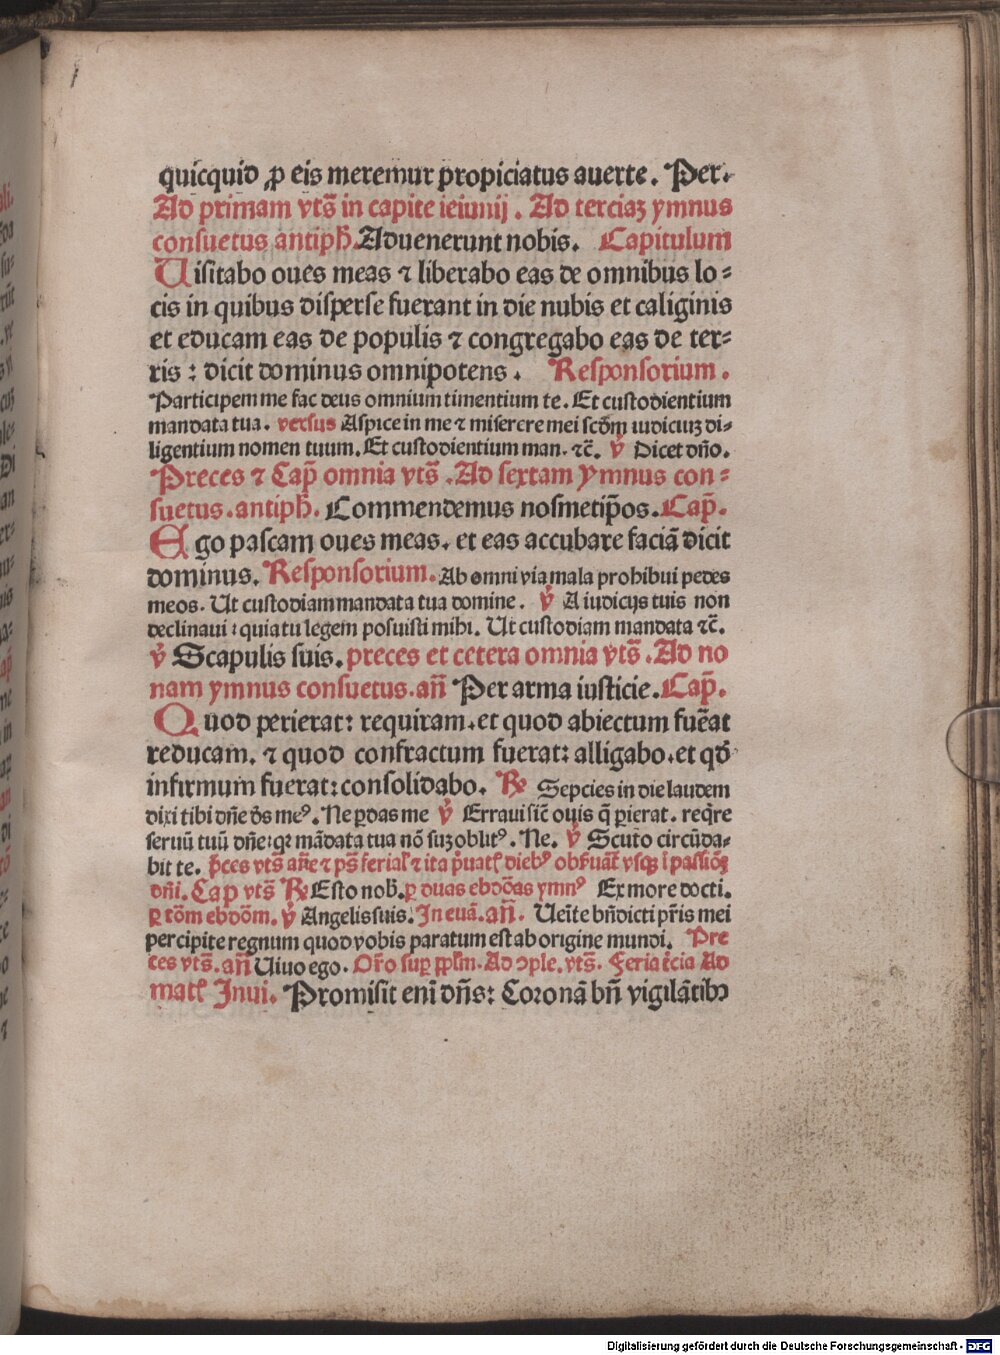 quicquid ꝓ eis meremur propiciatus auerte. Per.
Ad primam vts̄ in capite ieiunij. Ad terciaꝫ ymnus
consuetus antiph̄. Aduenerunt nobis. Capitulum
Uisitabo oues meas ⁊ liberabo eas de omnibus lo⸗
cis in quibus disperse fuerant in die nubis et caliginis
et educam eas de populis ⁊ congregabo eas de ter⸗
ris : dicit dominus omnipotens. Responsorium.
Participem me fac deus omnium timentium te. Et custodientium
mandata tua. versus Aspice in me ⁊ miserere mei scd̄m iudiciuꝫ di⸗
ligentium nomen tuum. Et custodientium man. ⁊c̄. v̄ Dicet dn̄o.
Preces ⁊ Cap̄ omnia vts̄. Ad sextam Ymnus con⸗
suetus. antiph̄. Commendemus nosmetip̄os. Cap̄.
Ego pascam oues meas. et eas accubare faciā dicit
dominus. Responsorium. Ab omni via mala prohibui pedes
meos. Ut custodiam mandata tua domine. v̄ A iudicijs tuis non
declinaui : quia tu legem posuisti mihi. Ut custodiam mandata ⁊c̄.
v̄ Scapulis suis. preces et cetera omnia vts̄. Ad no
nam ymnus consuetus. an̄ Per arma iusticie. Cap̄.
Quod perierat: requiram. et quod abiectum fuēat
reducam. ⁊ quod confractum fuerat: alligabo. et qd̄
infirmum fuerat: consolidabo. ℞ Sepcies in die laudem
dixi tibi dn̄e ds̄ meꝰ. Ne ꝑdas me v̄ Erraui sic̄ ouis q̄ ꝑierat. reqr̄e
seruū tuū dn̄e: qꝛ mādata tua nō suꝫ oblitꝰ. Ne. v̄ Scuto circūda⸗
bit te. p̄ces vts̄ an̄e ⁊ ps̄ ferial̄ ⁊ ita p̄uatꝭ diebꝰ obẜuāt̄ vsqꝫ ī passiōꝫ
dn̄i. Cap vts̄ ℞ Esto nob̄. ꝑ duas ebdōas ymnꝰ Ex more docti.
ꝑ tōm ebdōm. v̄ Angelis suis. In euā. an̄. Uen̄te bn̄dicti pr̄is mei
percipite regnum quod vobis paratum est ab origine mundi. Pre
ces vts̄. an̄ Uiuo ego. Or̄o suꝑ pp̄lm. Ad ↄple. vts̄. Feria t̄cia Ad
matꝭ Inui. Promisit enī dn̄s: Coronā bn̄ vigilātibꝰ
Digitalisierung gefördert durch die Deutsche Forschungsgemeinschaft - DFG